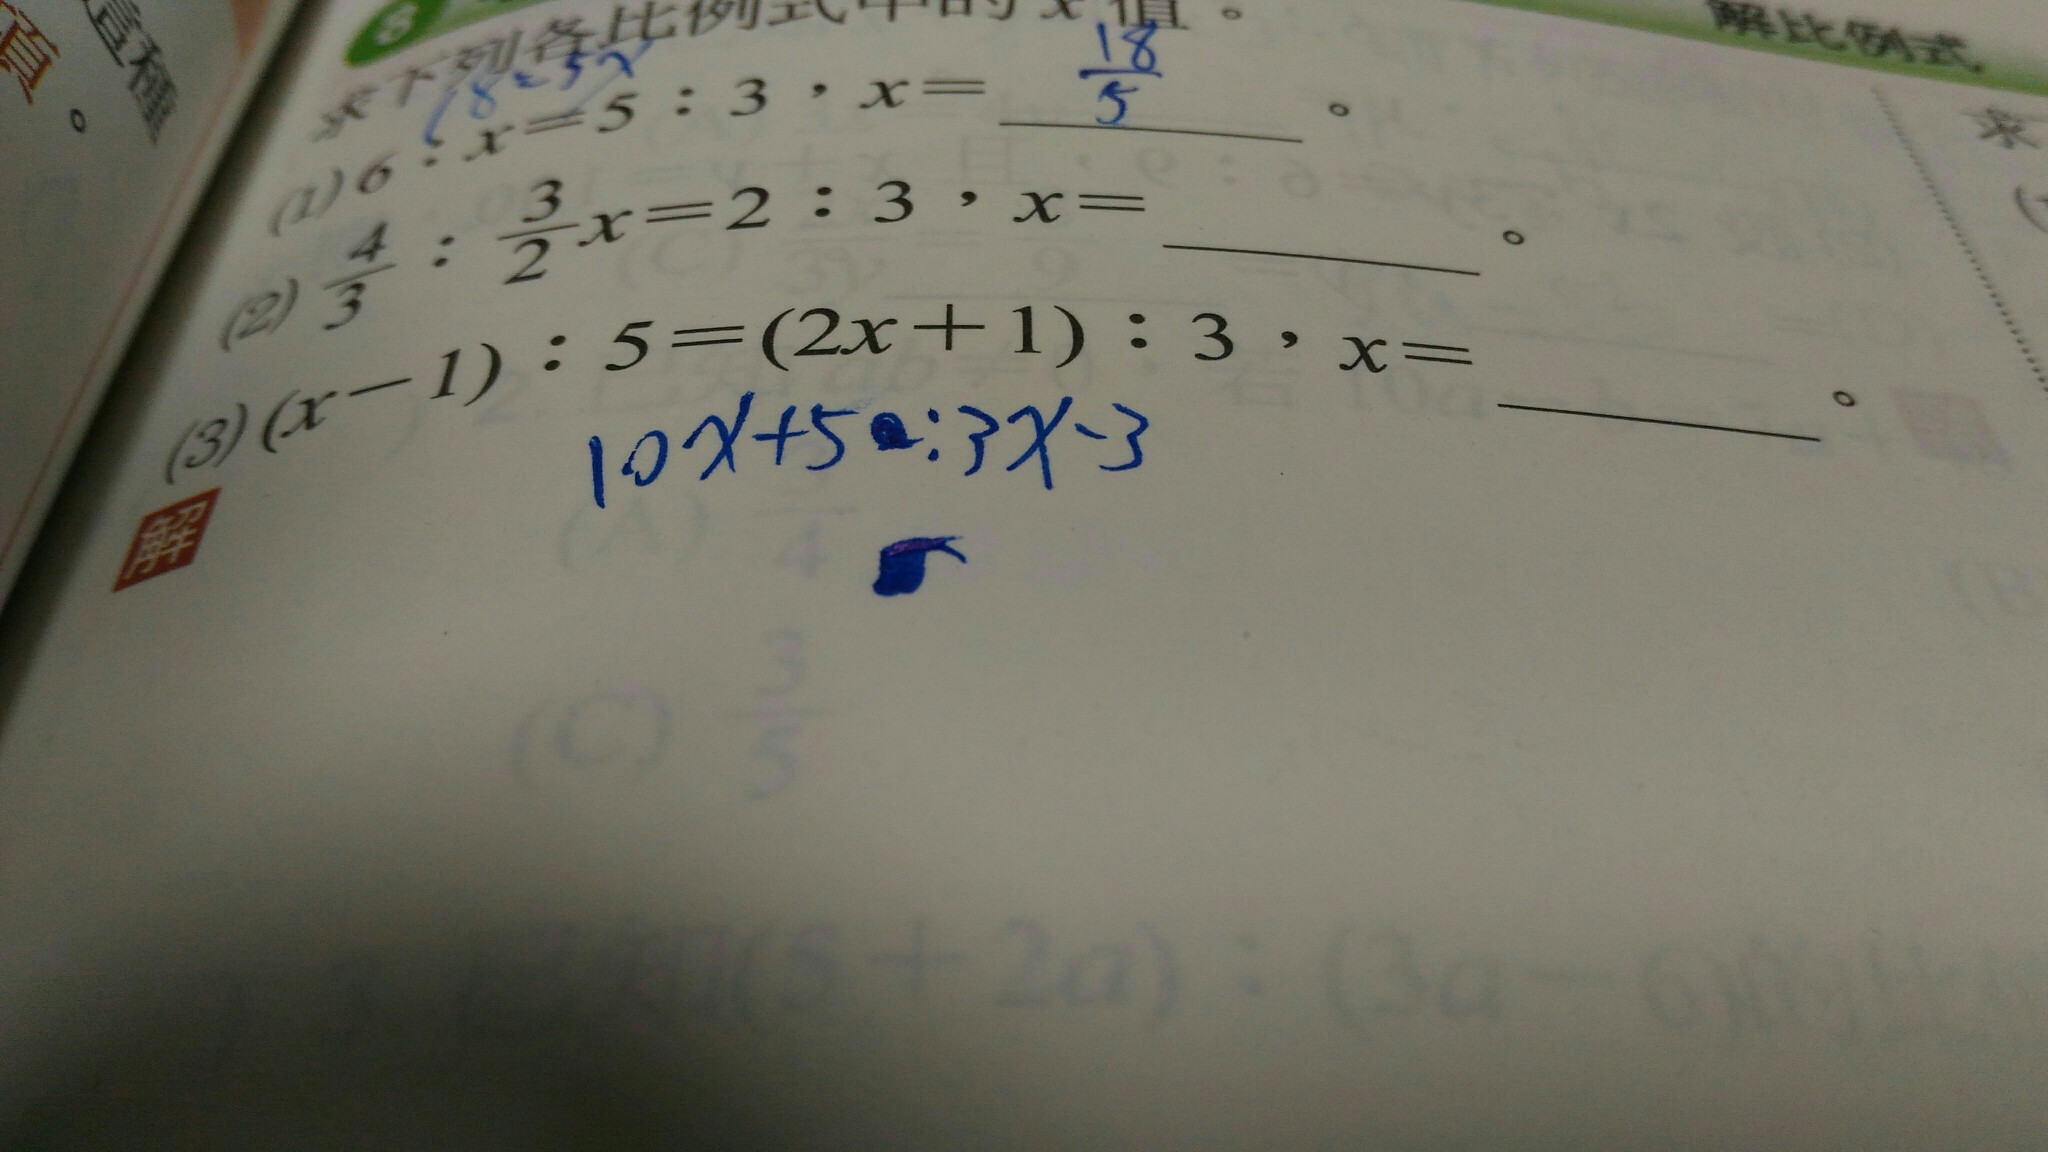 8
解比例式
求下列各比例式中的 x 值。
18=5x
(1) 6：x＝5：3，x＝ 18/5 。
(2) 4/3：3/2 x＝2：3，x＝ 。
(3) (x－1)：5＝(2x＋1)：3，x＝ 。
10x+5 : 3x-3
解
求